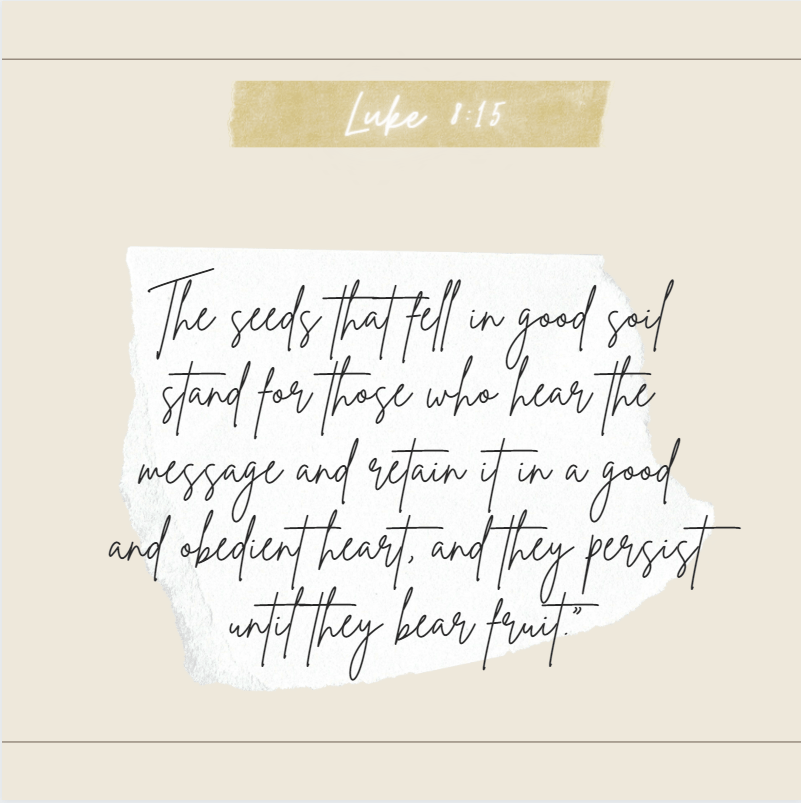 Luke 8:15
The seeds that fell in good soil
stand for those who hear the
message and retain it in a good
and obedient heart, and they persist
until they bear fruit.”